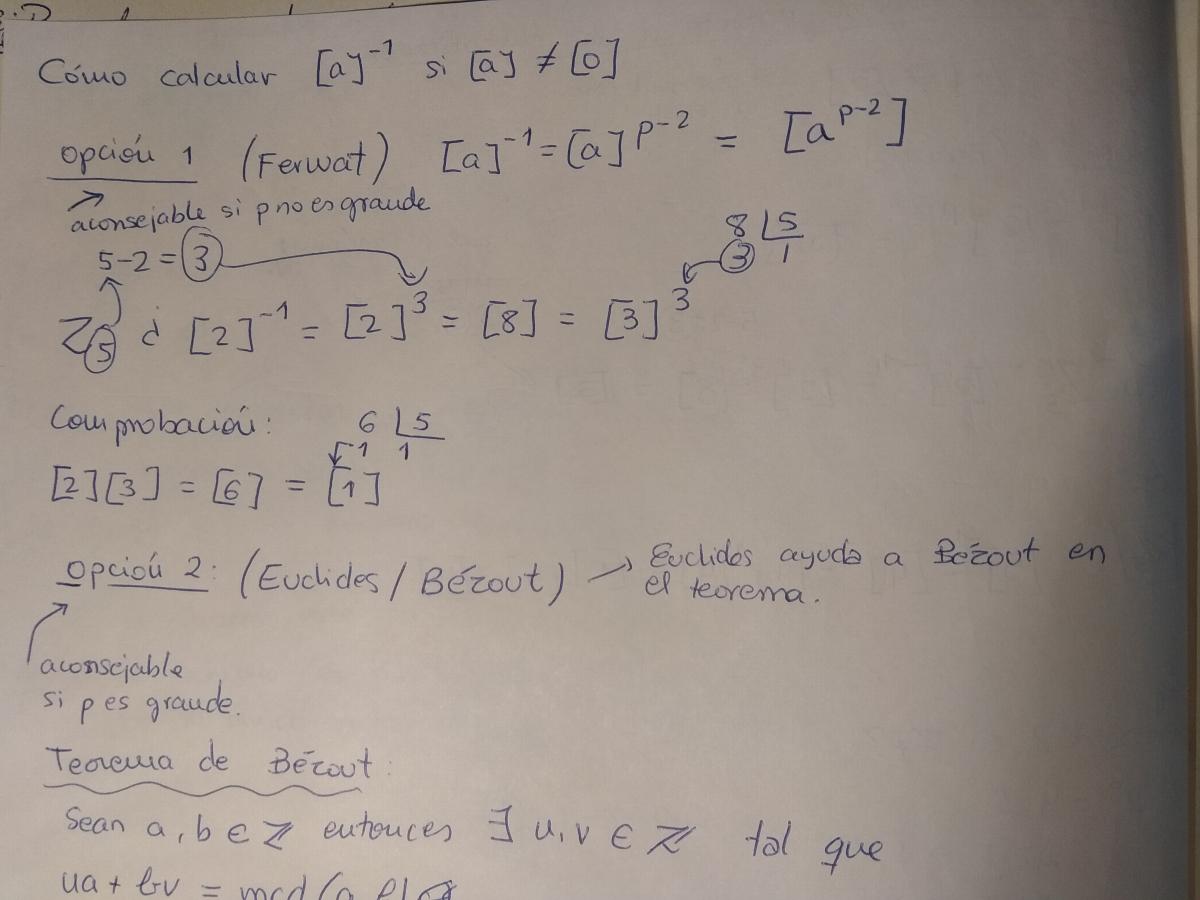 Cómo calcular [a]⁻¹ si [a] ≠ [0]
Opción 1 (Fermat) [a]⁻¹ = [a]ᵖ⁻² = [aᵖ⁻²]
aconsejable si p no es grande
8 | 5
5-2 = 3
3 1
Z₅ ¿ [2]⁻¹ = [2]³ = [8] = [3] ³
Comprobación:
6 | 5
1 1
[2][3] = [6] = [1]
Opción 2: (Euclides / Bézout) → Euclides ayuda a Bézout en
el teorema.
aconsejable
si p es grande.
Teorema de Bézout:
Sean a, b ∈ ℤ entonces ∃ u, v ∈ ℤ tal que
ua + bv = mcd(a